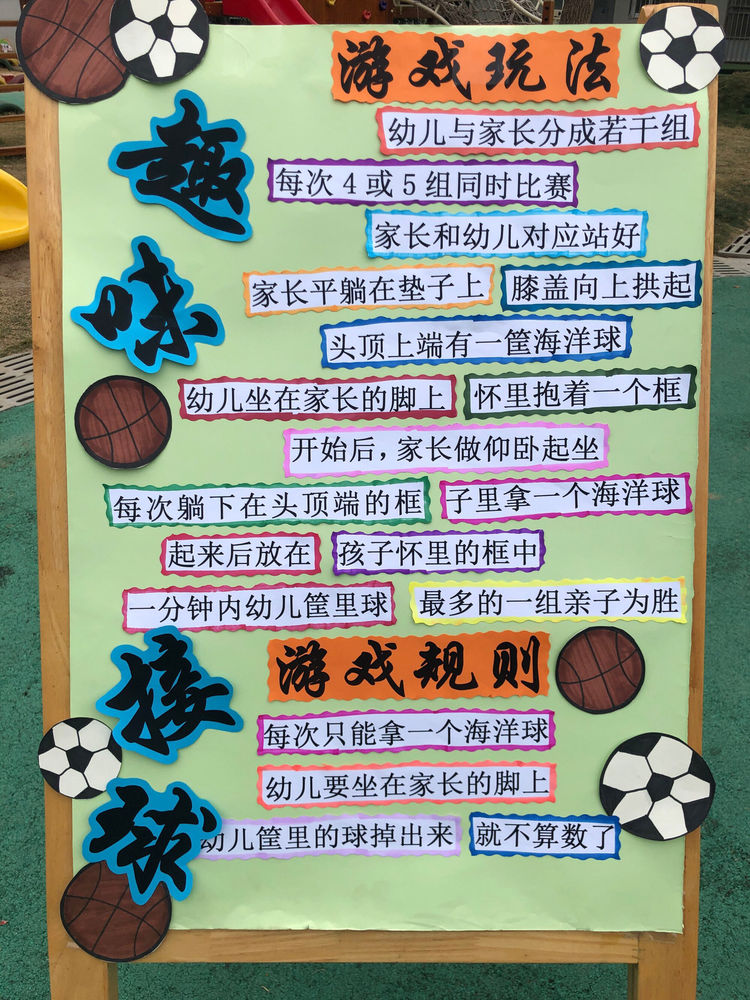 趣味接球
游戏玩法
幼儿与家长分成若干组
每次4或5组同时比赛
家长和幼儿对应站好
家长平躺在垫子上 膝盖向上拱起
头顶上端有一筐海洋球
幼儿坐在家长的脚上 怀里抱着一个框
开始后，家长做仰卧起坐
每次躺下在头顶端的框 子里拿一个海洋球
起来后放在 孩子怀里的框中
一分钟内幼儿筐里球 最多的一组亲子为胜
游戏规则
每次只能拿一个海洋球
幼儿要坐在家长的脚上
幼儿筐里的球掉出来 就不算数了